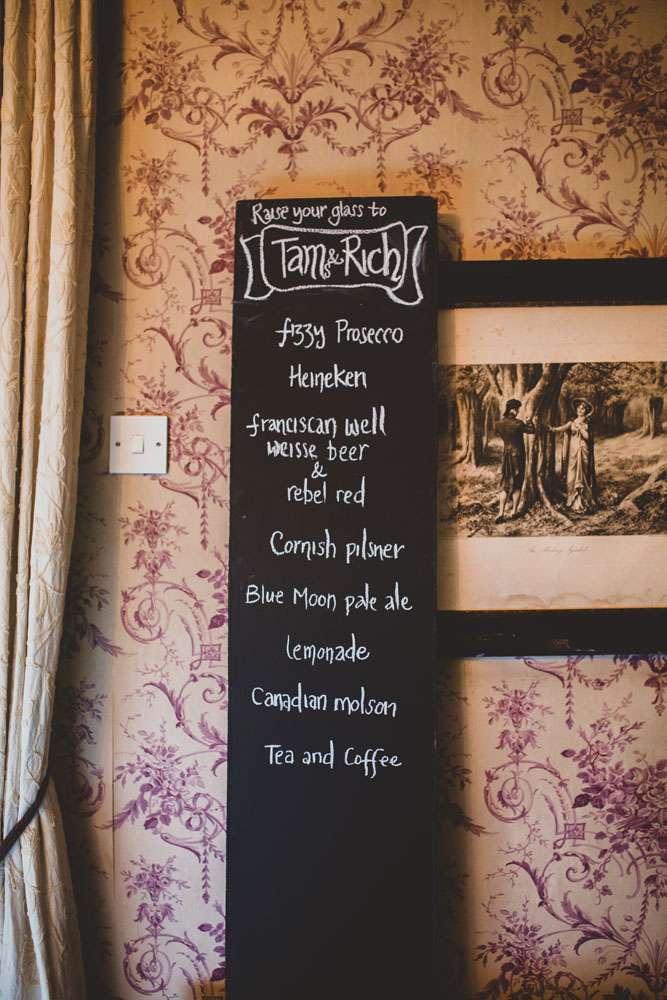 Raise your glass to
Tam & Rich
fizzy Prosecco
Heineken
franciscan well
weisse beer
&
rebel red
Cornish pilsner
Blue Moon pale ale
lemonade
Canadian molson
Tea and Coffee